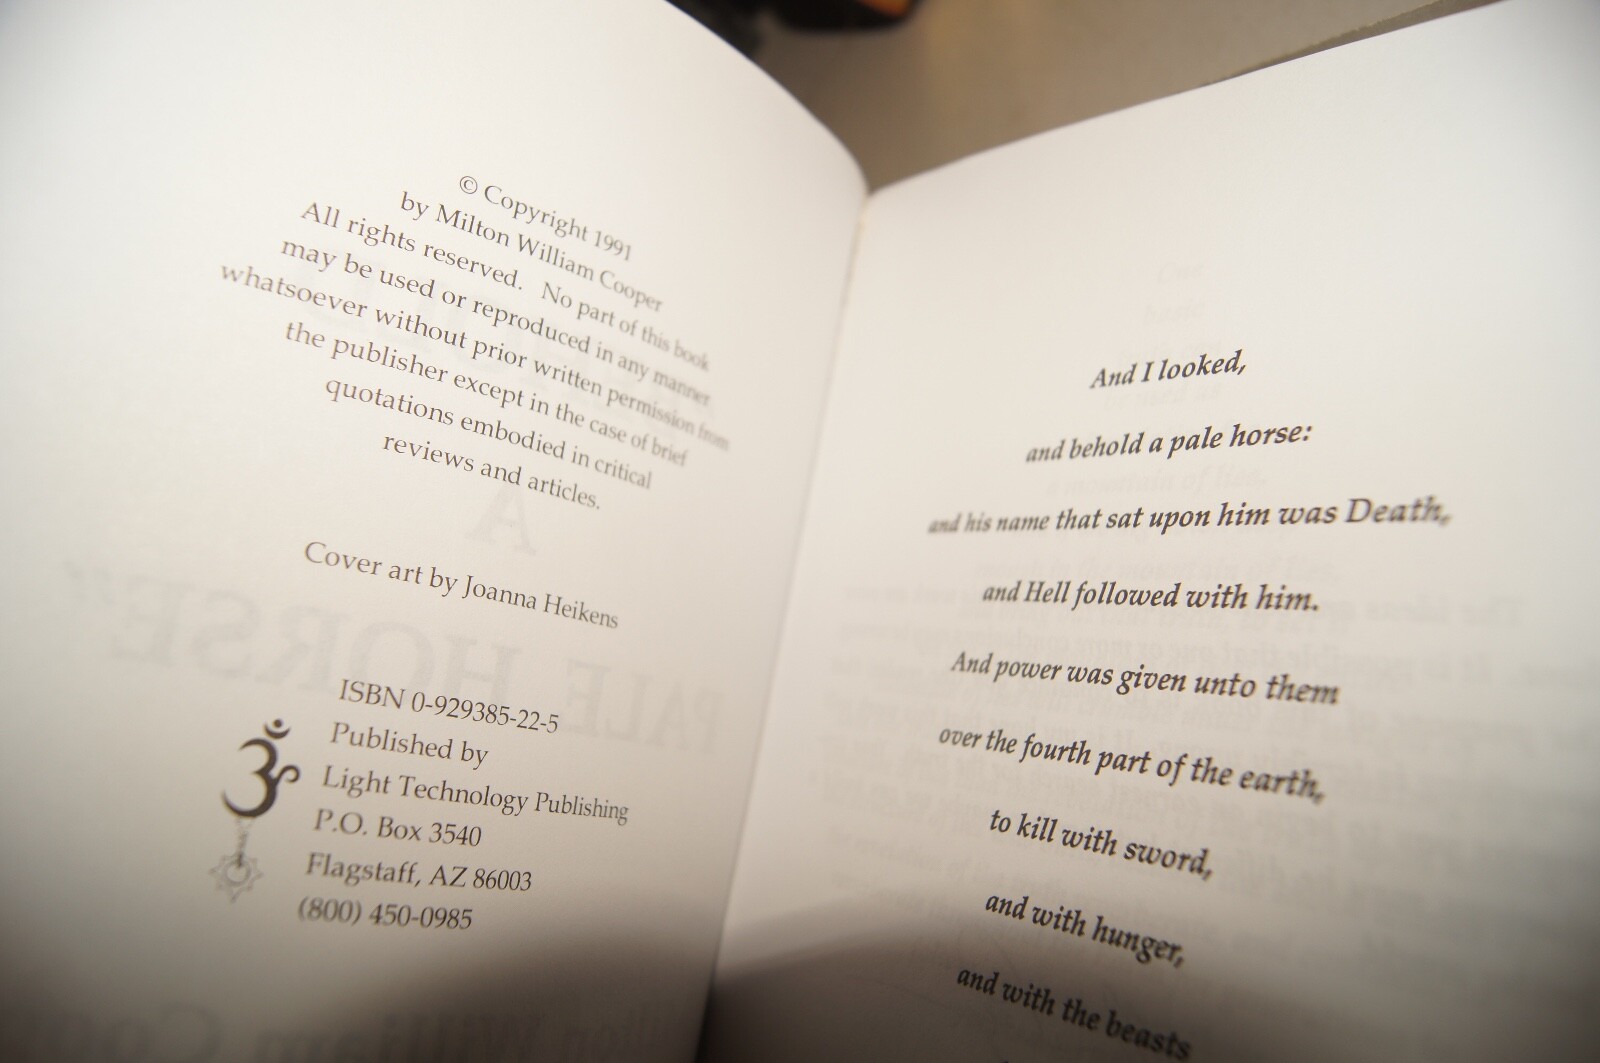 © Copyright 1991
by Milton William Cooper
All rights reserved. No part of this book
may be used or reproduced in any manner
whatsoever without prior written permission from
the publisher except in the case of brief
quotations embodied in critical
reviews and articles.
Cover art by Joanna Heikens
ISBN 0-929385-22-5
Published by
Light Technology Publishing
P.O. Box 3540
Flagstaff, AZ 86003
(800) 450-0985
And I looked,
and behold a pale horse:
and his name that sat upon him was Death,
and Hell followed with him.
And power was given unto them
over the fourth part of the earth,
to kill with sword,
and with hunger,
and with the beasts